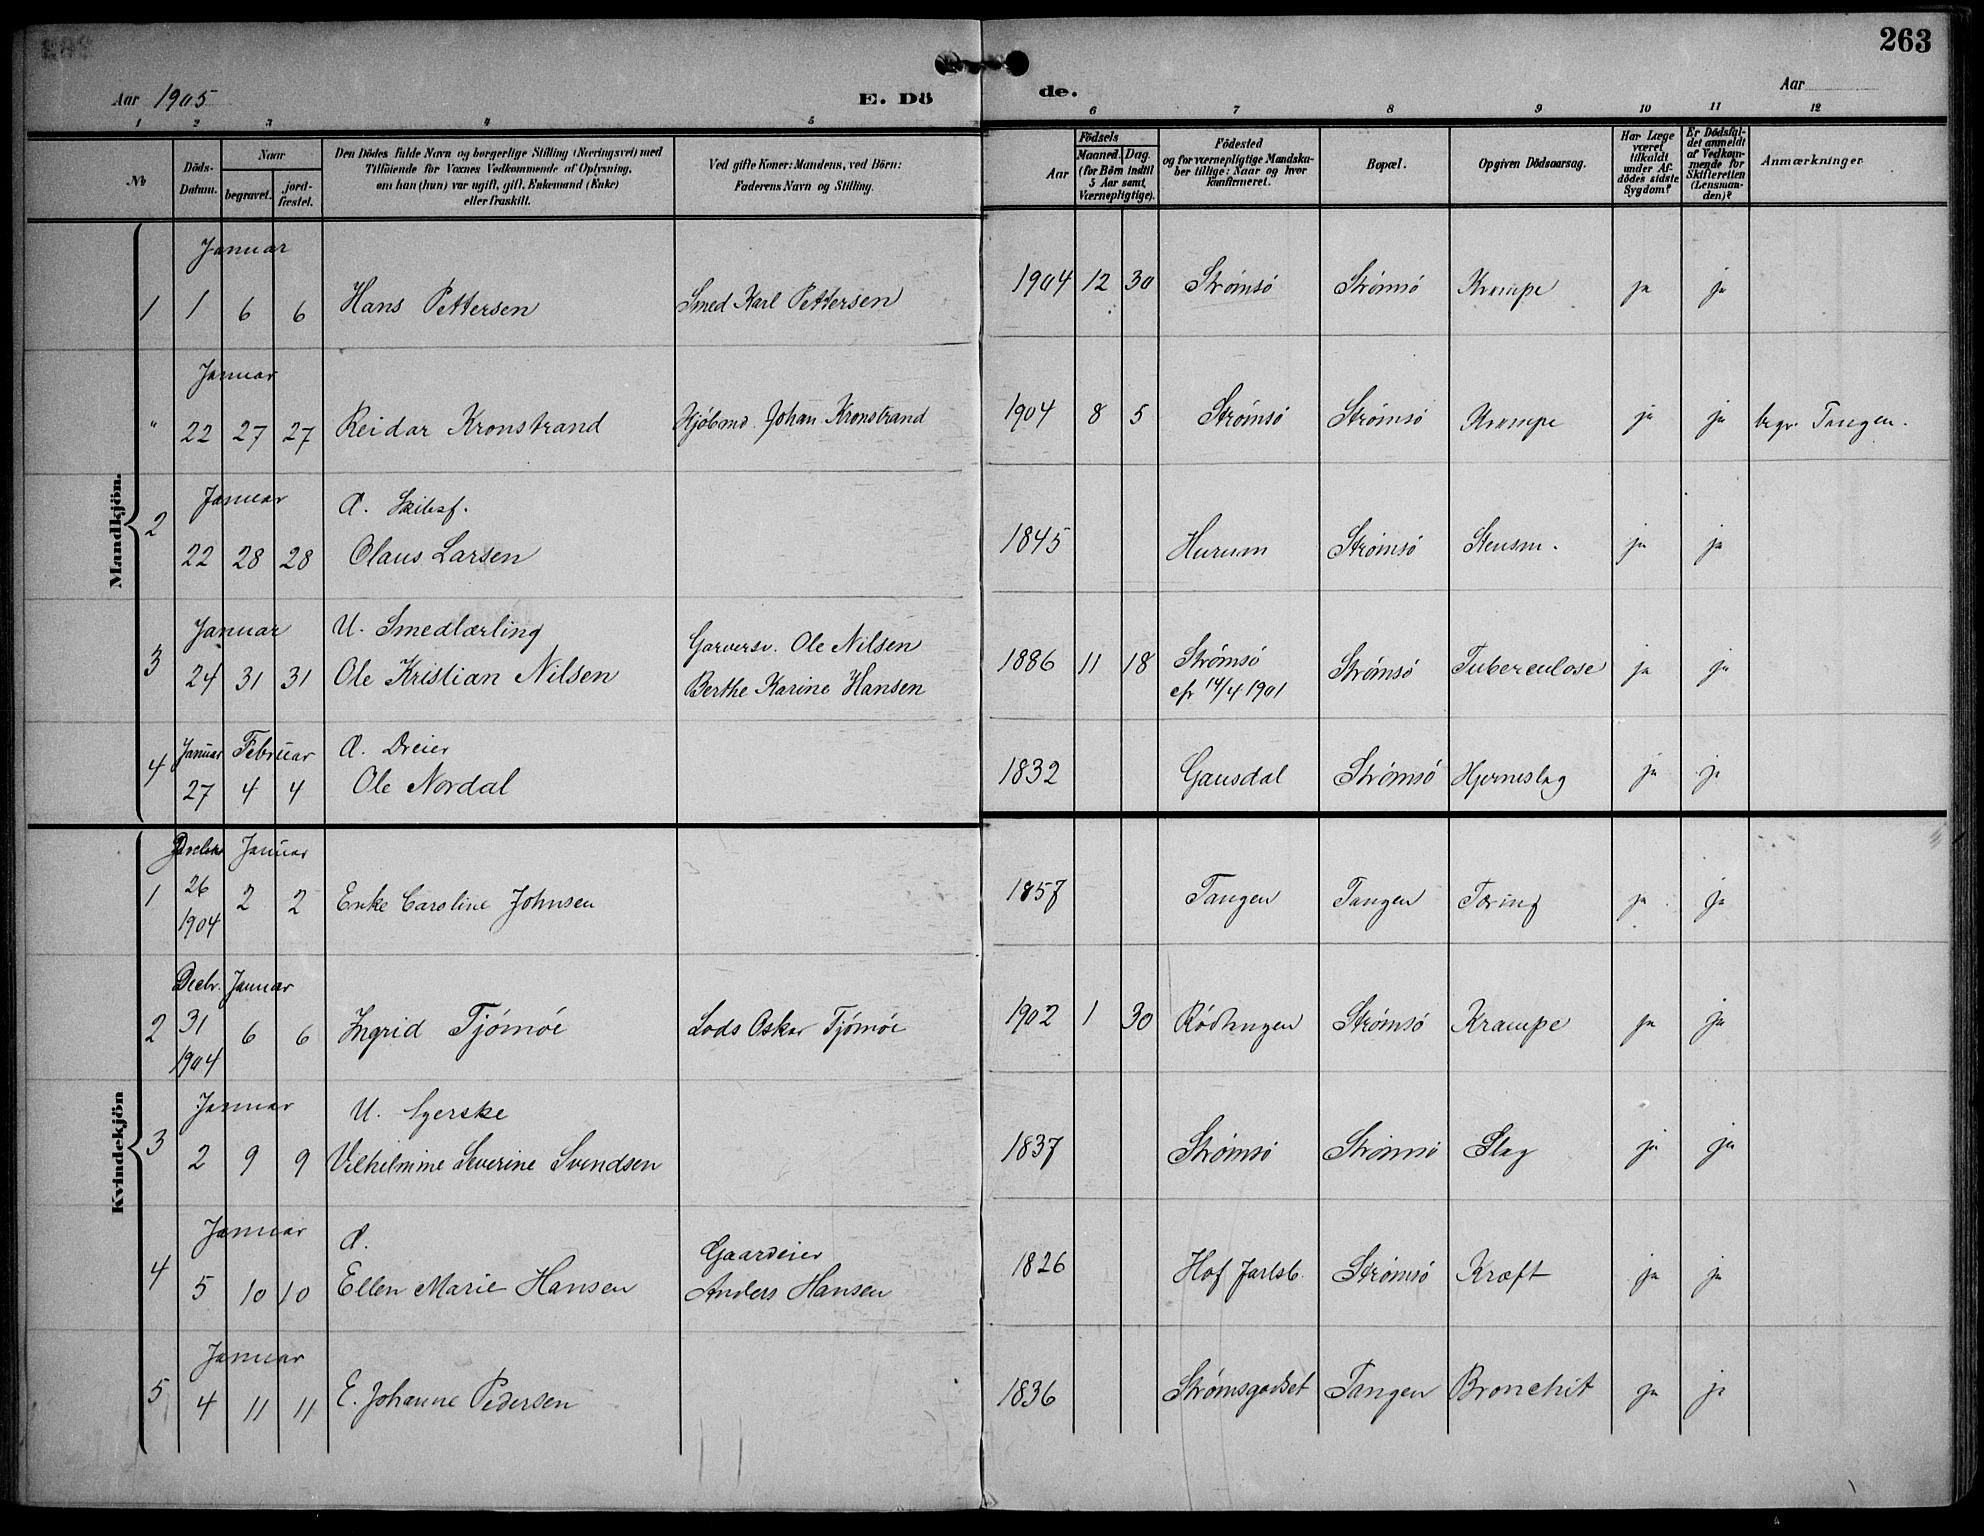 263
Aar 1905
E. Döde.
Aar
1 2 3 4 5 6 7 8 9 10 11 12
No
Döds-Datum.
Naar
begravet.
jord-fæstet.
Den Dödes fulde Navn og borgerlige Stilling (Næringsvei) med
Tilföiende for Voxnes Vedkommende af Oplysning,
om han (hun) var ugift, gift, Enkemand (Enke)
eller fraskilt.
Ved gifte Koner: Mandens, ved Börn:
Faderens Navn og Stilling.
Födsels
Aar
Maaned. Dag.
(for Börn indtil
5 Aar samt
Værnepligtige).
Födested
og for værnepligtige Mandska-
ber tillige: Naar og hvor
konfirmeret.
Bopæl.
Opgiven Dödsaarsag.
Har Læge
været
tilkaldt
under Af-
dödes sidste
Sygdom?
Er Dödsfal-
det anmeldt
af Vedkom-
mende for
Skifteretten
(Lensman-
den)?
Anmærkninger
Mandkjön.
Januar
1 1 6 6 Hans Pettersen Smed Karl Pettersen 1904 12 30 Strømsö Strømsö Krampe ja ja
Januar
" 22 27 27 Reidar Kronstrand Kjöbmd. Johan Kronstrand 1904 8 5 Strømsö Strømsö Krampe ja ja begr. Tangen.
Januar G. Skibsf.
2 22 28 28 Olaus Larsen 1845 Hurum Strømsö ja ja
Januar U. Smedlærling Garversv. Ole Nilsen
3 24 31 31 Ole Kristian Nilsen Berthe Karine Hansen 1886 11 18 Strømsö Strømsö Tuberculose ja ja
cfr 14/4 1901
Januar Februar G. Dreier
4 27 4 4 Ole Nordal 1832 Gausdal Strømsö Hjerneslag ja ja
Kvindekjön
Januar
1 26 2 2 Enke Caroline Johnsen 1857 Tangen Tangen Tæring ja ja
1904
Decbr. Januar
2 31 6 6 Ingrid Tjömöe Lods Oskar Tjömöe 1902 1 30 Rödtangen Strømsö Krampe ja ja
1904
Januar U. Syerske
3 2 9 9 Vilhelmine Severine Svendsen 1837 Strømsö Strømsö Slag ja ja
Januar G. Gaardeier
4 5 10 10 Ellen Marie Hansen Anders Hansen 1826 Hof Jarlsb. Strømsö Kræft ja ja
Januar
5 4 11 11 E. Johanne Pedersen 1836 Strømsgodset Tangen Bronchit ja ja